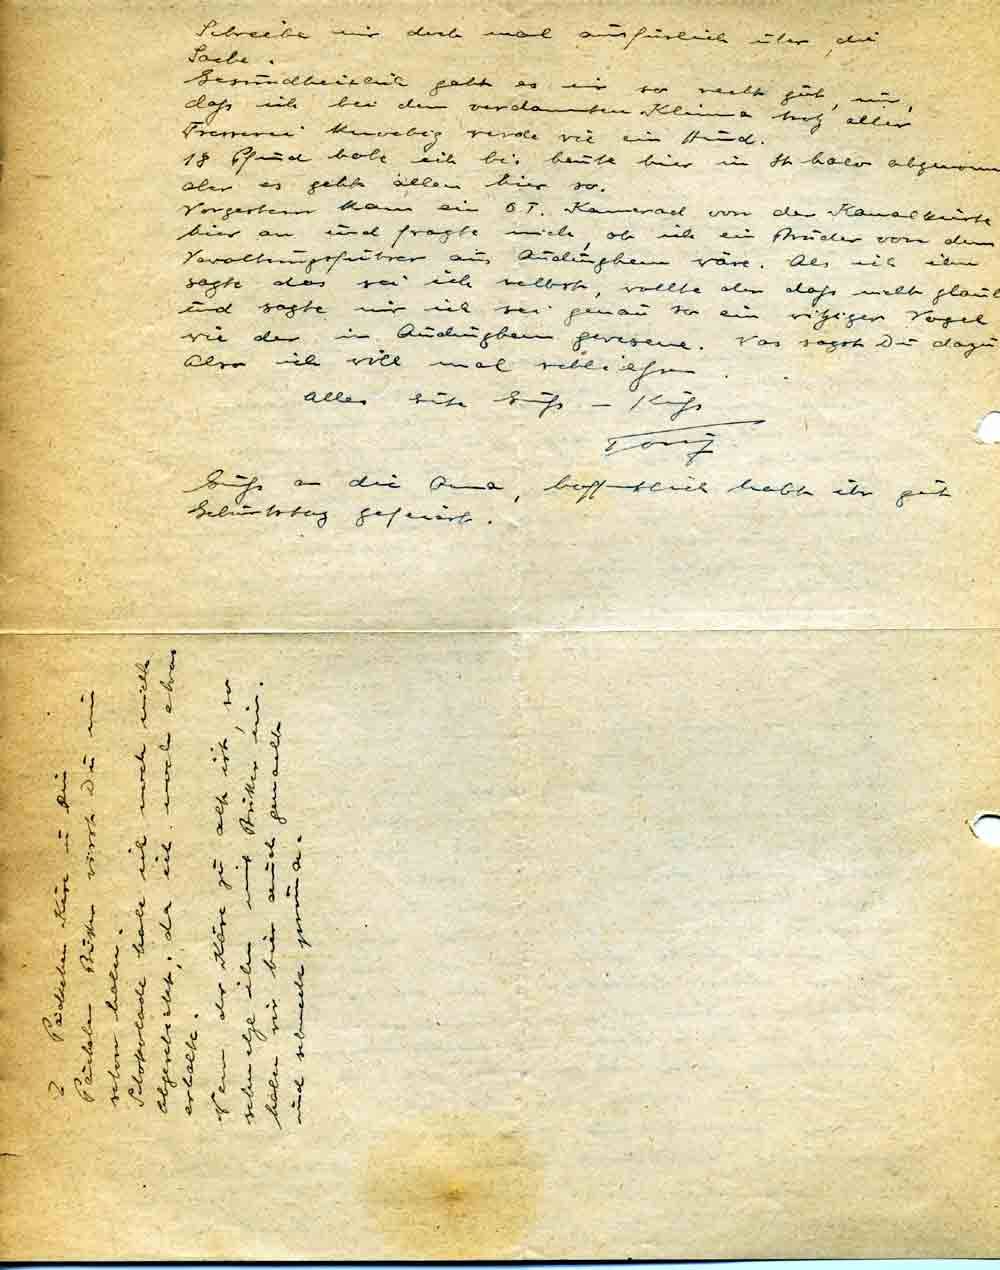 Schreibe mir doch mal ausfürlich über die
Sache.
Gesundheitlich geht es mir so recht gut, nur,
daß ich bei dem verdammten Klima trotz aller
Fresserei knochig werde wie ein Hund.
18 Pfund habe ich bis heute hier in St Malo abgenomm
aber es geht allen hier so.
Vorgestern kam ein O T. Kamerad von der Kanalküste
hier an und fragte mich, ob ich ein Bruder von dem
Verwaltungsführer aus Audinghem wäre. Als ich ihm
sagte das sei ich selbst, wollte der daß nicht glaub
und sagte mir ich sei genau so ein witziger Vogel
wie der in Audinghem gewesene. Was sagst Du dazu
Also ich will mal schließen.
Alles Gute Gruß – Kuß
Tony
Gruß an die Anna, hoffentlich habt ihr gut
Geburtstag gefeiert.
2 Päckchen Käse u ein
Päckchen Butter wirst Du nun
schon haben.
Schokolade habe ich noch nicht
abgeschickt, da ich noch etwas
erhalte.
Wenn der Käse zu alt ist, so
schmelze ihn mit Butter ein.
haben wir hier auch gemacht
und schmeckt prima.